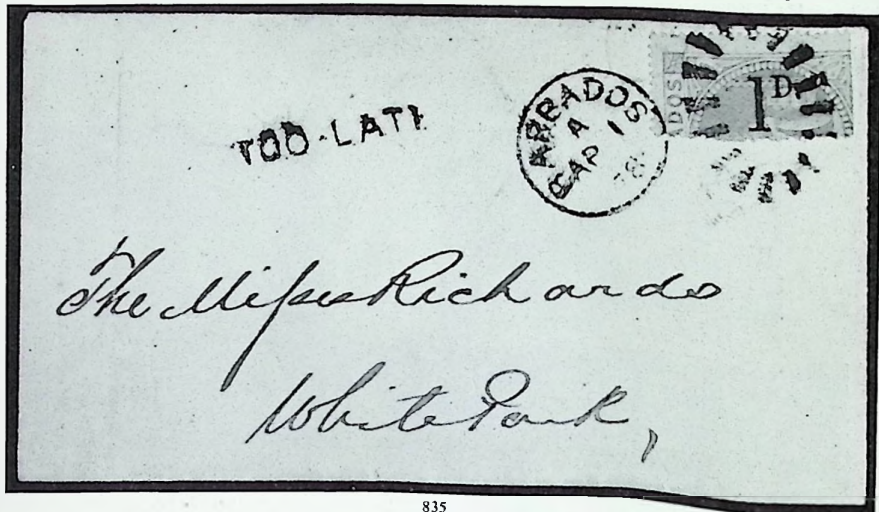 1D
TOO-LATE
BARBADOS
A
AP 1
78
ADOS
The Misses Richards
White Park,
835